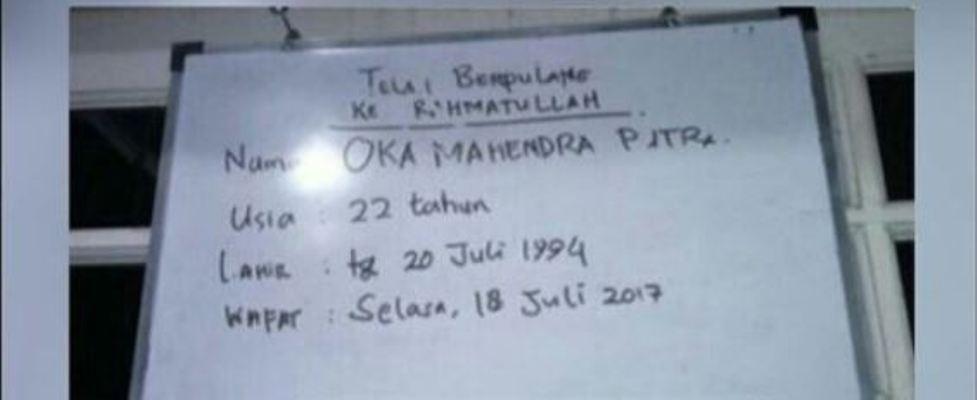 TELAH BERPULANG
KE RAHMATULLAH
Nama OKA MAHENDRA PUTRA.
Usia : 22 tahun
LAHIR : tg 20 Juli 1994
WAFAT : Selasa, 18 Juli 2017